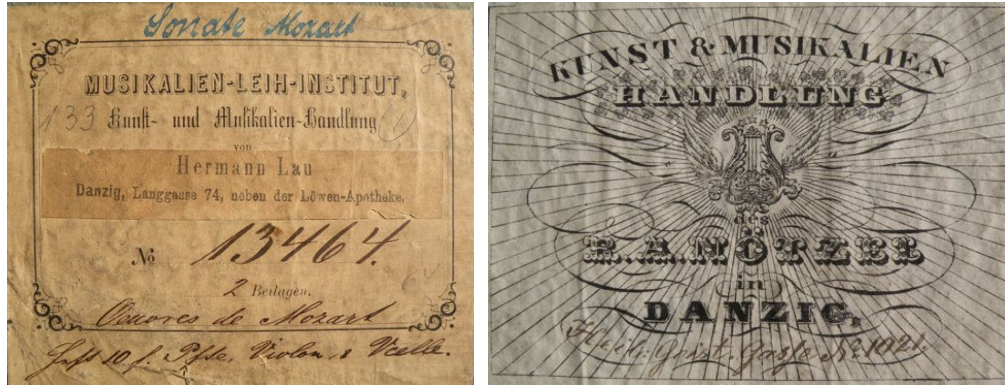 Sonate Mozart
MUSIKALIEN-LEIH-INSTITUT,
133 Kunst- und Musikalien-Handlung
von
Hermann Lau
Danzig, Langgasse 74, neben der Löwen-Apotheke.
No 13464.
2 Beilagen.
Oeuvres de Mozart
Heft 10. f. Pfte, Violon, & Vcelle.
KUNST & MUSIKALIEN
HANDLUNG
des
R. A. NÖTZEL
in
DANZIG,
Heil: Geist-Gasse No 1021.